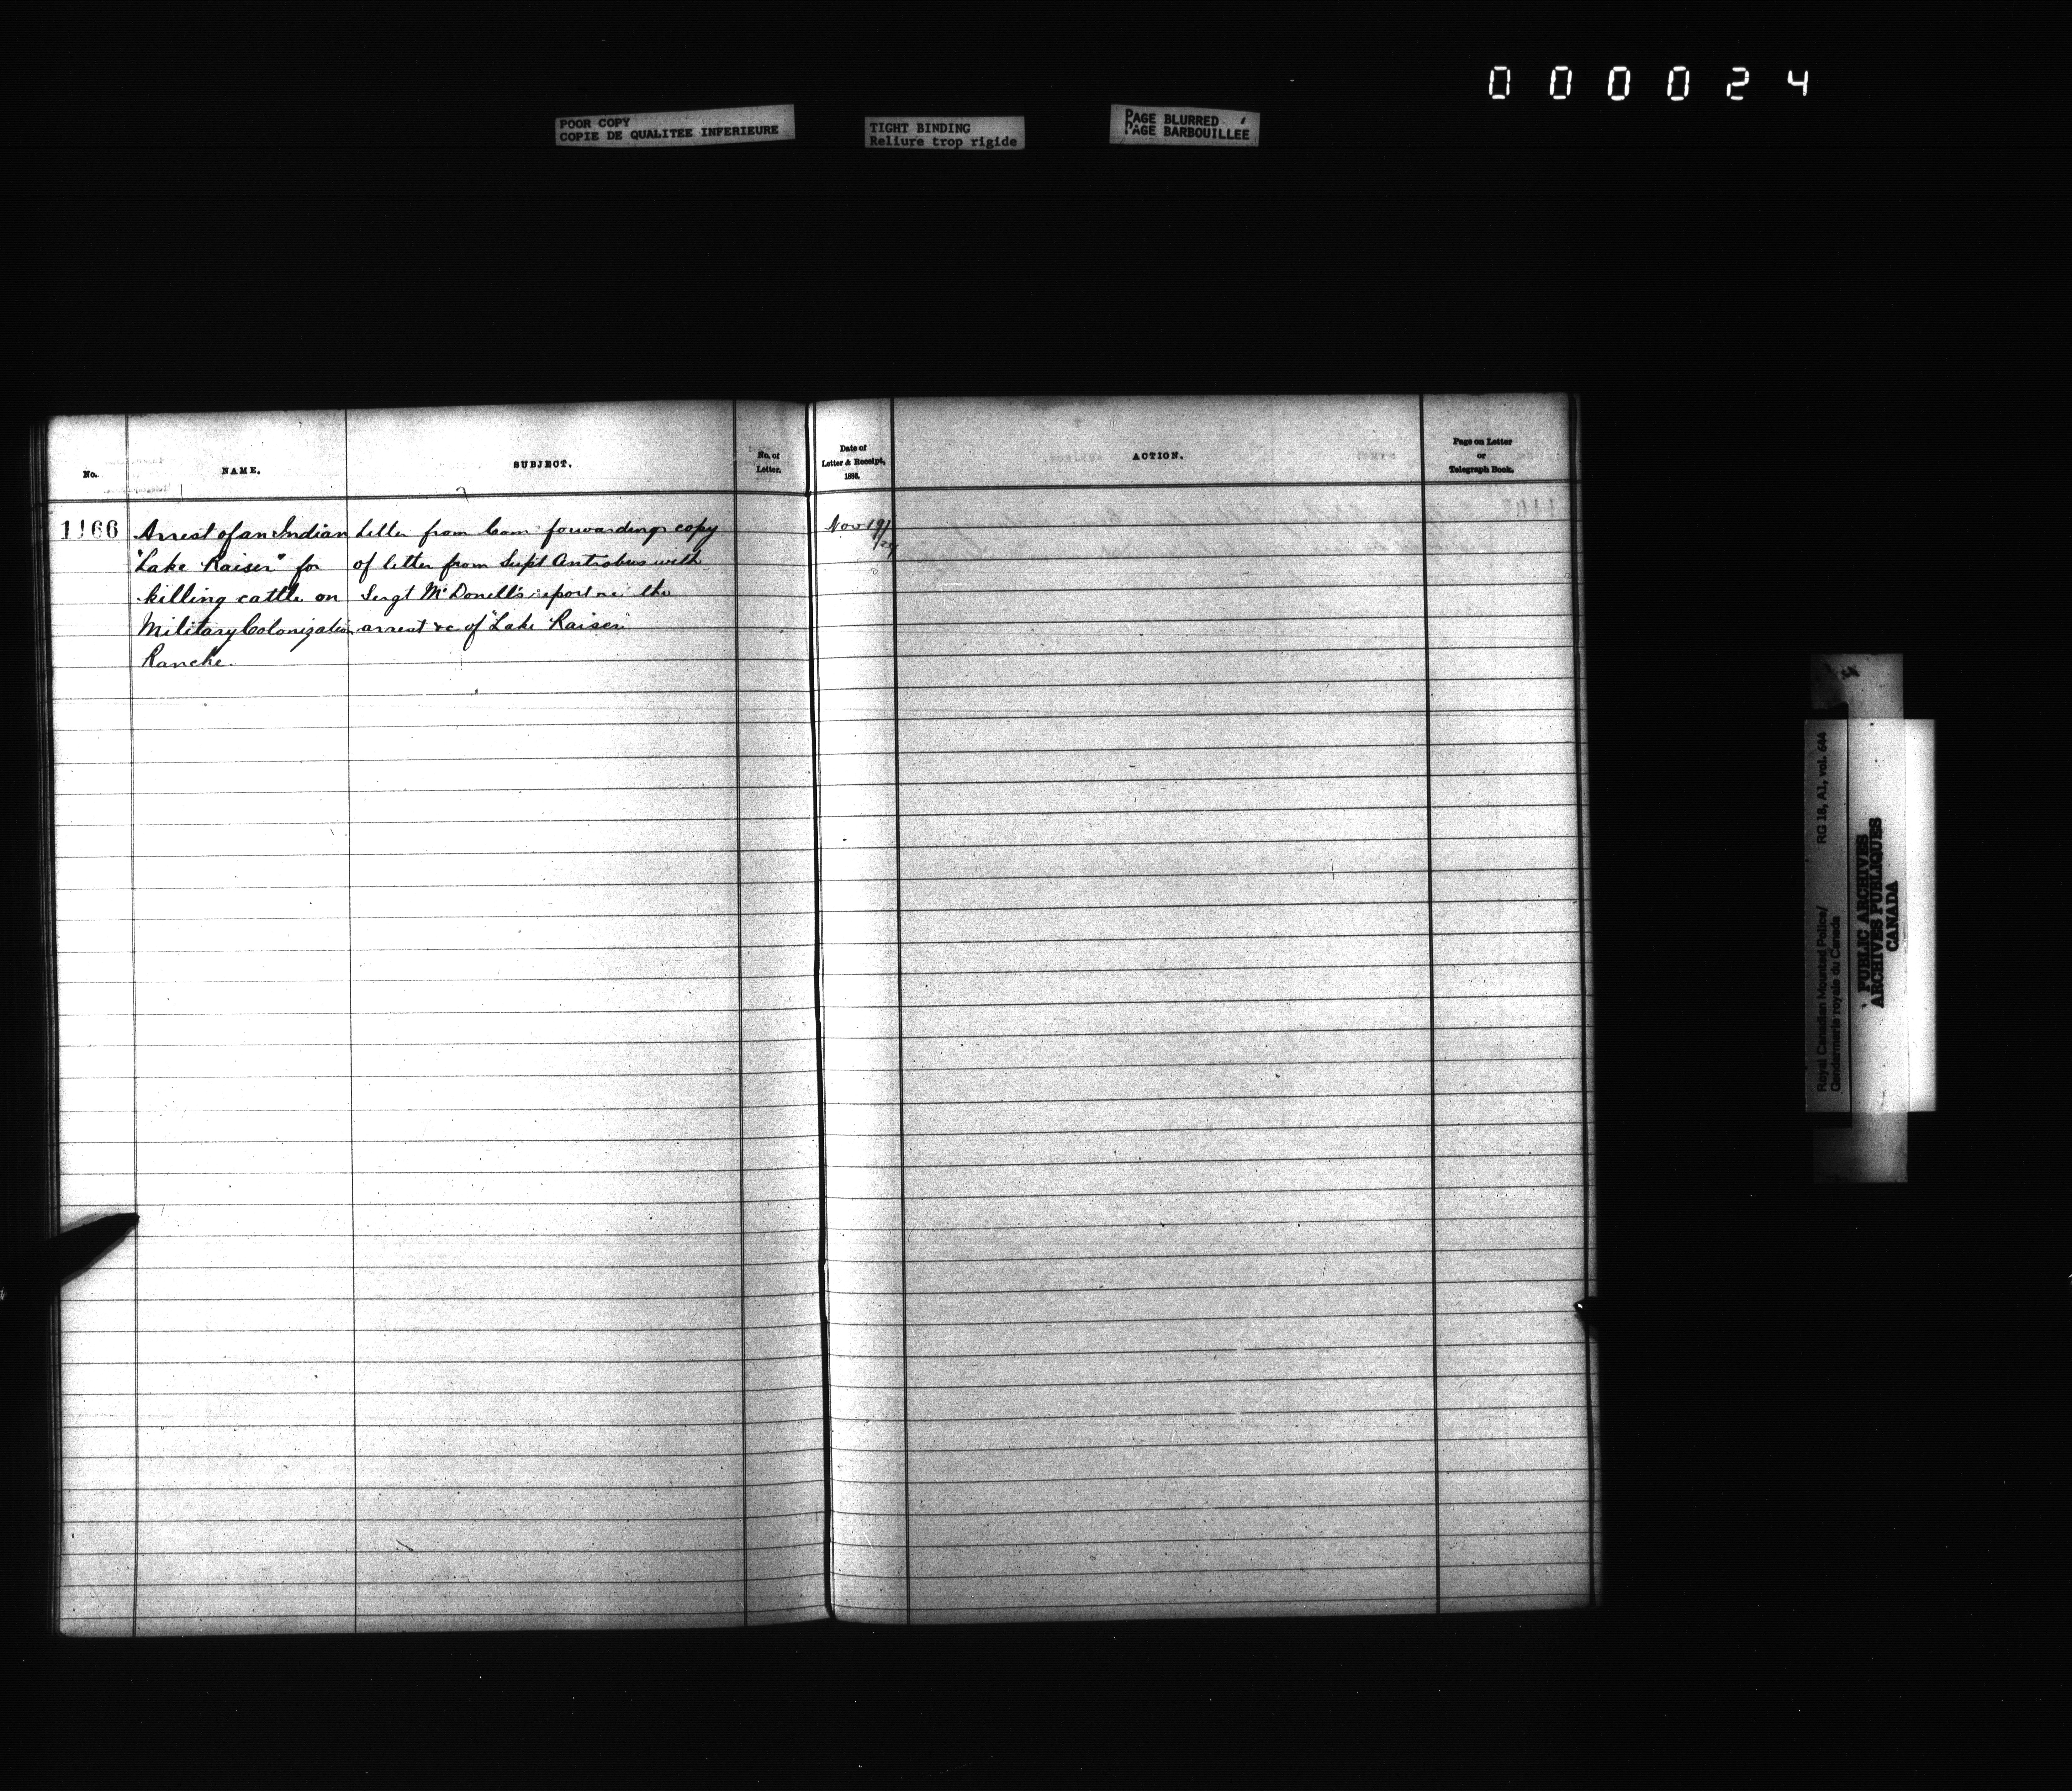 000024
POOR COPY
COPIE DE QUALITEE INFERIEURE
TIGHT BINDING
Reliure trop rigide
PAGE BLURRED
PAGE BARBOUILLEE
No.
NAME.
SUBJECT.
No. of
Letter.
Date of
Letter & Receipt,
1888.
ACTION.
Page on Letter
or
Telegraph Book.
1166
Arrest of an Indian
"Lake Raiser" for
killing cattle on
Military Colonization
Ranche.
Letter from Com forwarding copy
of letter from Supt Antrobus with
Sergt McDonell's report re the
arrest &c of "Lake Raiser"
Nov 19/
/24
Royal Canadian Mounted Police/ RG 18, A1, vol. 644
Gendarmerie royale du Canada
PUBLIC ARCHIVES
ARCHIVES PUBLIQUES
CANADA